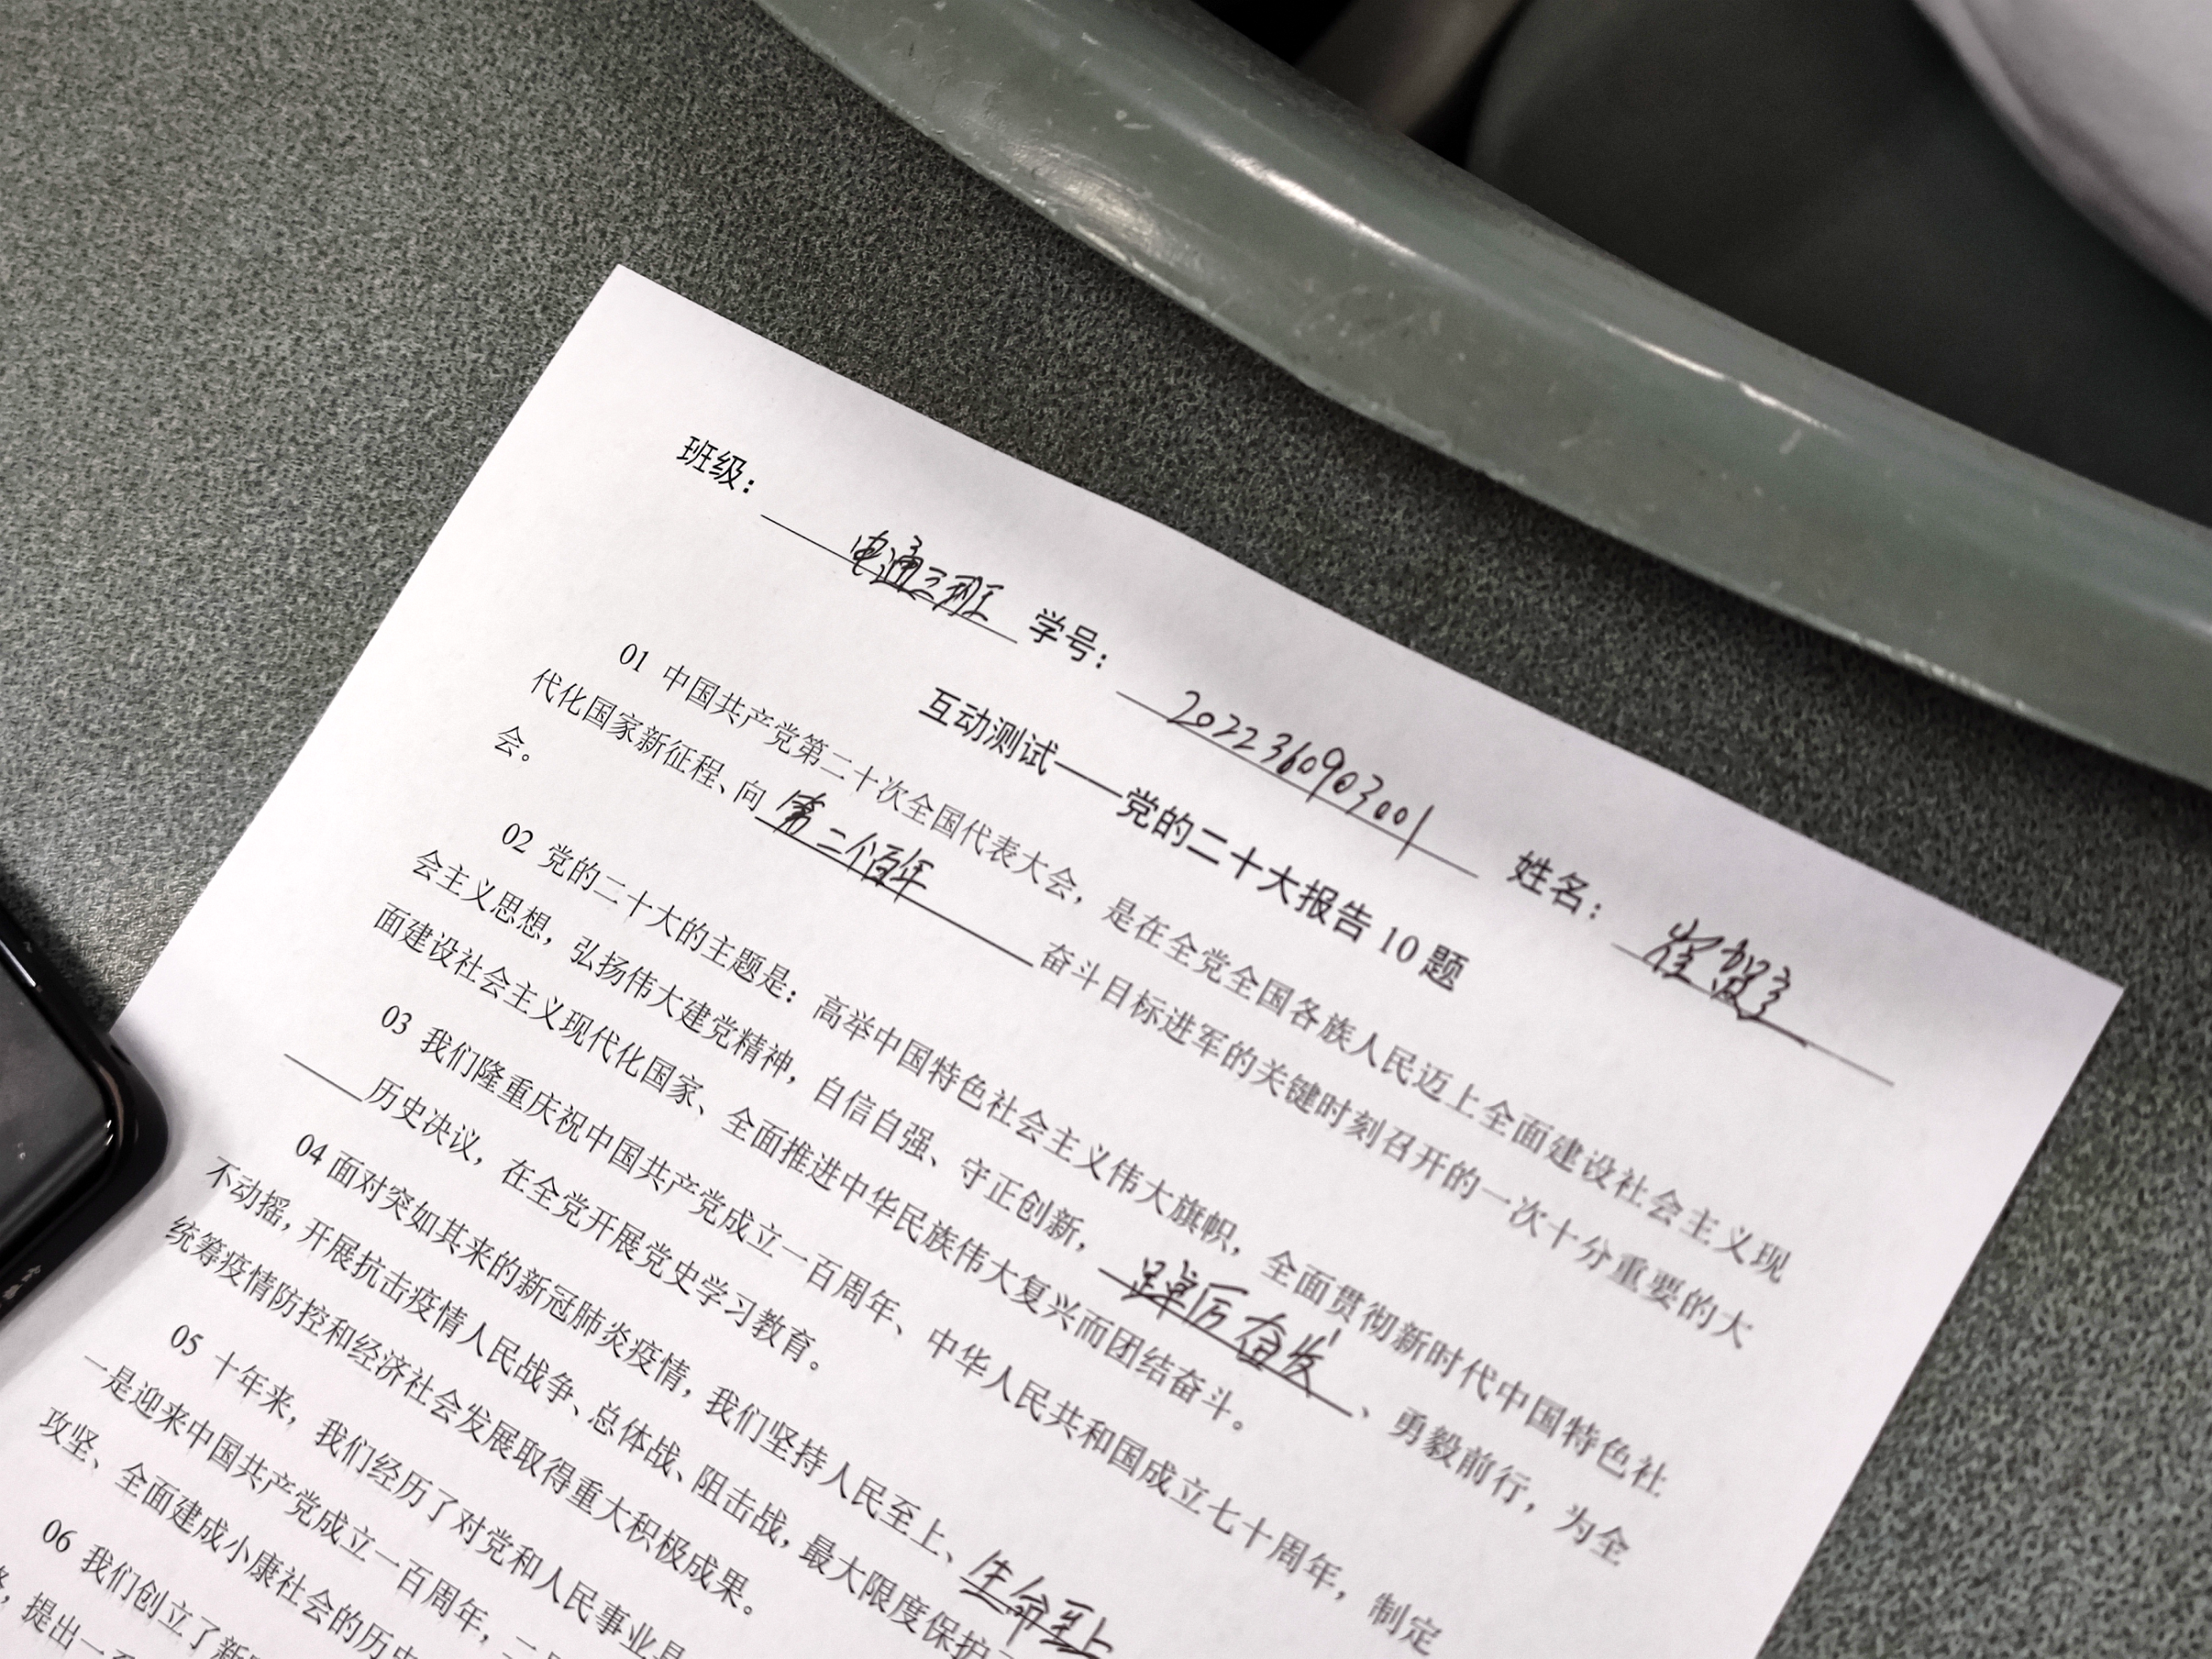 班级： 电通三班 学号： 202236090300１ 姓名： 崔
互动测试——党的二十大报告 10 题
01 中国共产党第二十次全国代表大会，是在全党全国各族人民迈上全面建设社会主义现
代化国家新征程、向 第二个百年 奋斗目标进军的关键时刻召开的一次十分重要的大
会。
02 党的二十大的主题是：高举中国特色社会主义伟大旗帜，全面贯彻新时代中国特色社
会主义思想，弘扬伟大建党精神，自信自强、守正创新， 踔厉奋发 、勇毅前行，为全
面建设社会主义现代化国家、全面推进中华民族伟大复兴而团结奋斗。
03 我们隆重庆祝中国共产党成立一百周年、中华人民共和国成立七十周年，制定
历史决议，在全党开展党史学习教育。
04 面对突如其来的新冠肺炎疫情，我们坚持人民至上、 生命至上
不动摇，开展抗击疫情人民战争、总体战、阻击战，最大限度保护
统筹疫情防控和经济社会发展取得重大积极成果。
05 十年来，我们经历了对党和人民事业具
一是迎来中国共产党成立一百周年，二
攻坚、全面建成小康社会的历史
06 我们创立了新
，提出一